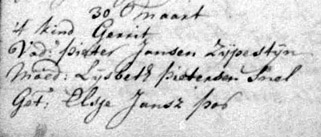 30 maart
't kind Gerrit
Vad: Pieter Jansen Zijpestijn
Moed: Lijsbeth Pietersen Snel
Get: Elsje Jansz pos